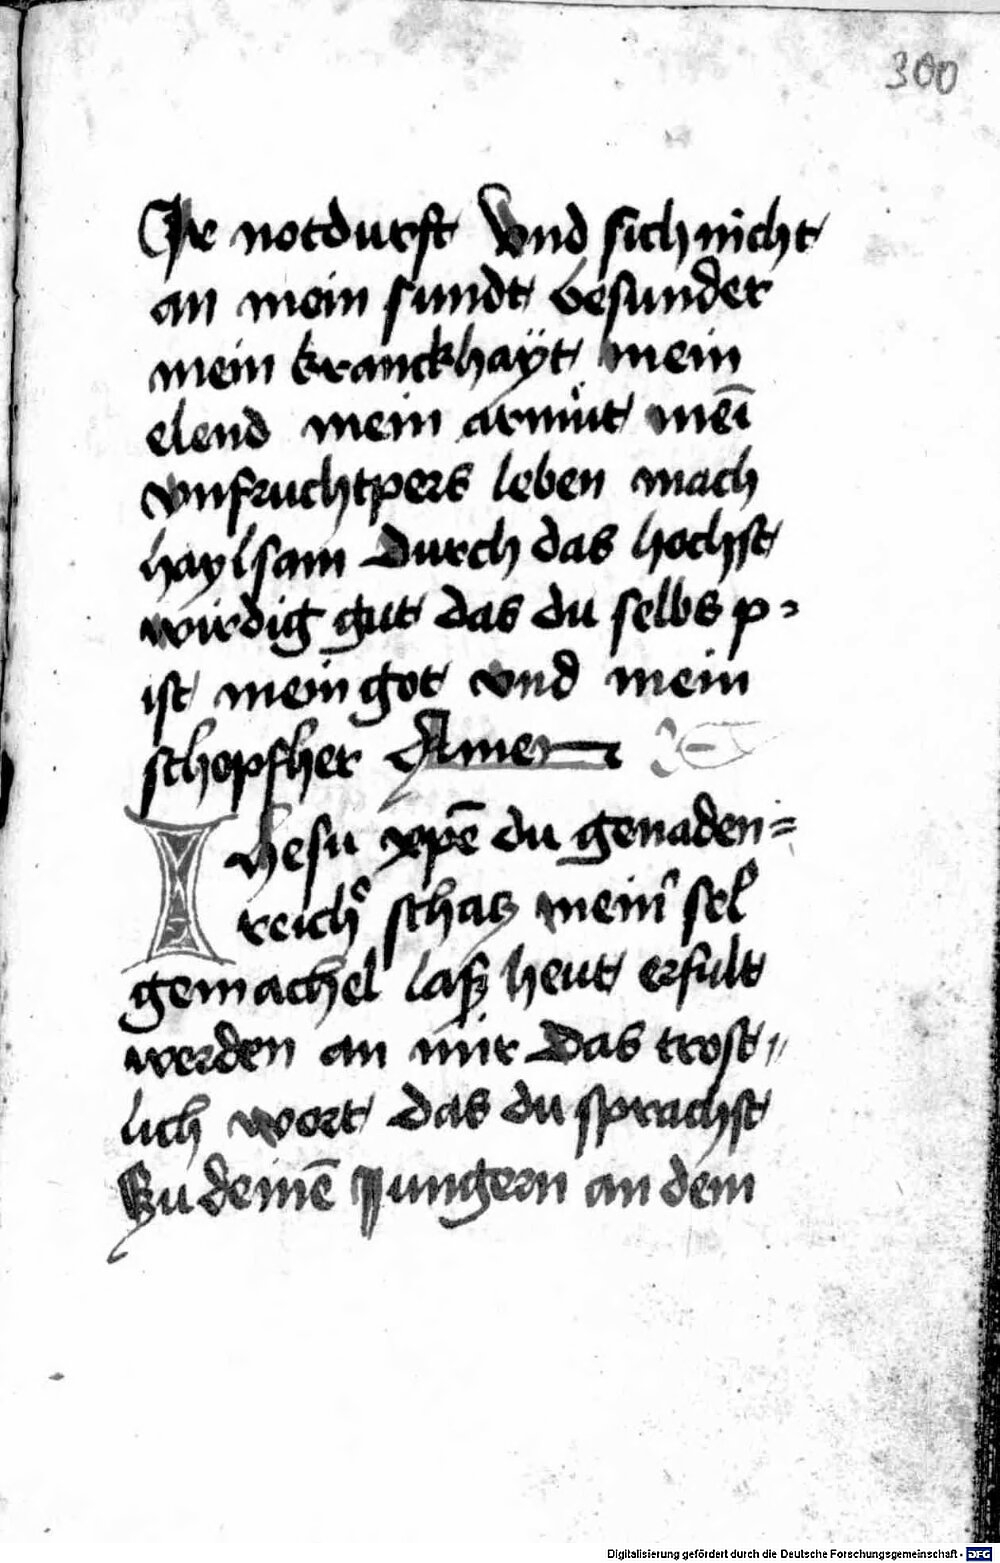 300
Ire notdurft Vnd sich nicht
an mein sundt besunder
mein kranckhaÿt mein
elend mein armůt mei̅
vnfruchtpers leben mach
haylsam durch das hochst
wirdig gut das du selbs p=
ist mein got vnd mein
schopfher Amen
Ihesu xpe̅ du genaden=
reichᵉʳ schatz meinᵉʳ selᵉ
gemachel laß heut erfult
werden an mir das trost=
lich wort das du sprachst
Zu deine̅ Jungern an dem
Digitalisierung gefördert durch die Deutsche Forschungsgemeinschaft - DFG